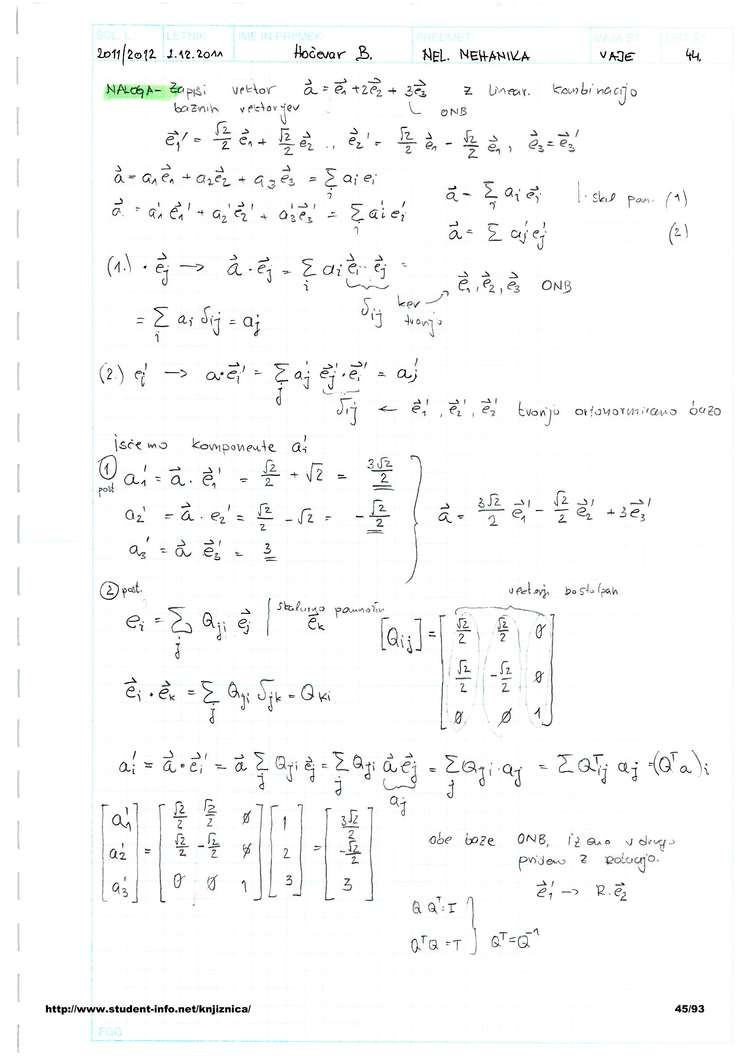 ŠOL. L. LETNIK IME IN PRIIMEK PREDMET VAJA ŠT. LIST ŠT.
2011/2012 2.12.2011 Hočevar B. MEHANIKA VAJE 44.
NALOGA - Zapiši vektor a⃗ = e⃗₁ + 2e⃗₂ + 3e⃗₃ z linear. kombinacijo
baznih vektorjev ONB
e⃗₁' = √2/2 e⃗₁ + √2/2 e⃗₂ ., e⃗₂' = √2/2 e⃗₁ - √2/2 e⃗₂, e⃗₃ = e⃗₃'
a⃗ = a₁e⃗₁ + a₂e⃗₂ + a₃e⃗₃ = ∑ᵢ aᵢeᵢ
a⃗ = a₁'e⃗₁' + a₂'e⃗₂' + a₃'e⃗₃' = ∑ᵢ aᵢ'eᵢ'
a⃗ = ∑ᵢ aᵢe⃗ᵢ |· skal pom. (1)
a⃗ = ∑ aⱼ'eⱼ' (2)
(1.) · e⃗ⱼ → a⃗ · e⃗ⱼ = ∑ᵢ aᵢ e⃗ᵢ · e⃗ⱼ =
δᵢⱼ ker tvorijo e⃗₁, e⃗₂, e⃗₃ ONB
= ∑ᵢ aᵢ δᵢⱼ = aⱼ
(2.) eᵢ' → a · e⃗ᵢ' = ∑ⱼ aⱼ' e⃗ⱼ' · e⃗ᵢ' = aⱼ'
δᵢⱼ ← e⃗₁', e⃗₂', e⃗₂' tvorijo ortonormirano bazo
iščemo komponente aᵢ'
① post
a₁' = a⃗ · e⃗₁' = √2/2 + √2 = 3√2/2
a₂' = a⃗ · e₂' = √2/2 - √2 = -√2/2
a₃' = a⃗ e⃗₃' = 3
a⃗ = 3√2/2 e⃗₁' - √2/2 e⃗₂' + 3e⃗₃'
② post.
eᵢ = ∑ⱼ Qⱼᵢ e⃗ⱼ | skalarno pomnožim e⃗ₖ
vektorji po stolpcih
[Qᵢⱼ] = [√2/2 √2/2 0
√2/2 -√2/2 0
0 0 1]
e⃗ᵢ · e⃗ₖ = ∑ⱼ Qⱼᵢ δⱼₖ = Qₖᵢ
aᵢ' = a⃗ · e⃗ᵢ' = a⃗ ∑ⱼ Qⱼᵢ e⃗ⱼ = ∑ⱼ Qⱼᵢ a⃗ e⃗ⱼ = ∑ⱼ Qⱼᵢ · aⱼ = ∑ Qᵀᵢⱼ aⱼ = (Qᵀa)ᵢ
aⱼ
[a₁' a₂' a₃'] = [√2/2 √2/2 0
√2/2 -√2/2 0
0 0 1] [1 2 3] = [3√2/2 -√2/2 3]
obe baze ONB, iz ene v drugo
pridemo z rotacijo.
e⃗₁' → R·e⃗₂
Q Qᵀ = I
QᵀQ = I } Qᵀ = Q⁻¹
http://www.student-info.net/knjiznica/ 45/93
FGG